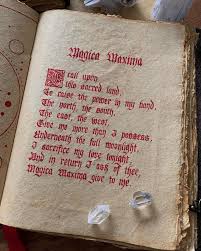 Magica Maxima
I call upon
this sacred land,
To raise the power in my hand.
The north, the south,
The east, the west,
Give me more than I possess.
Underneath the full moonlight,
I sacrifice my love tonight,
And in return I ask of thee,
Magica Maxima give to me.